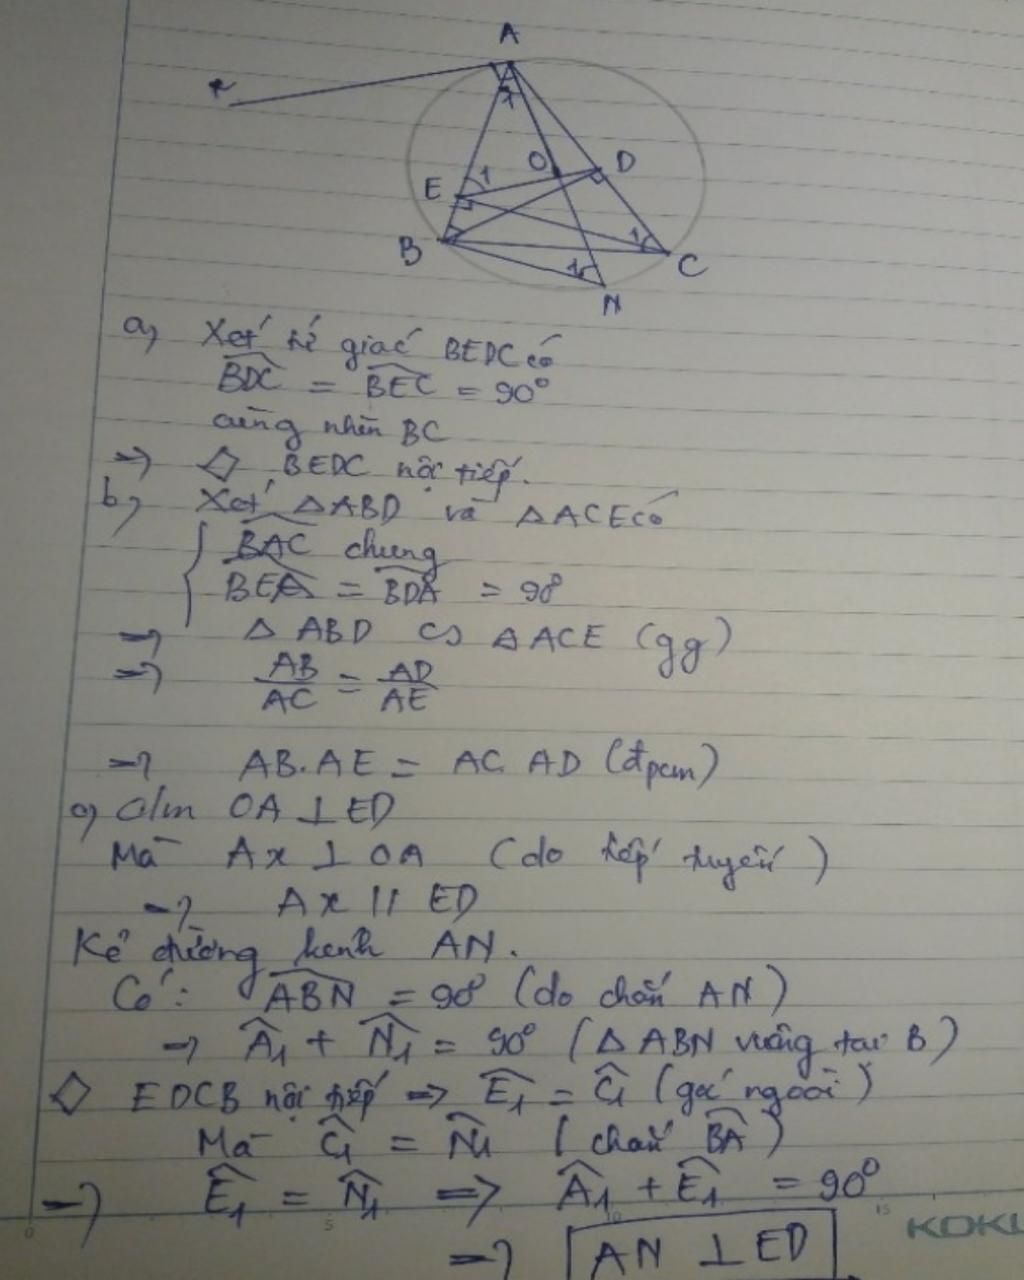 A
x
1
O
D
E
1
B
1
C
1
N
a) Xét tứ giác BEDC có
BDC = BEC = 90°
cùng nhìn BC
=> ◇ BEDC nội tiếp.
b) Xét △ABD và △ACE có
BAC chung
BEA = BDA = 90°
=> △ ABD ∽ △ACE (gg)
=> AB/AC = AD/AE
=> AB.AE = AC. AD (đpcm)
c) C/m OA ⊥ ED
Mà Ax ⊥ OA (do tiếp tuyến)
=> Ax // ED
Kẻ đường kính AN.
Có: ABN = 90° (do chắn AN)
=> A1 + N1 = 90° (△ ABN vuông tại B)
◇ EDCB nội tiếp => E1 = C1 (góc ngoài)
Mà C1 = N1 (chắn BA)
=> E1 = N1 => A1 + E1 = 90°
0 5 10 15 KOKU
=> AN ⊥ ED